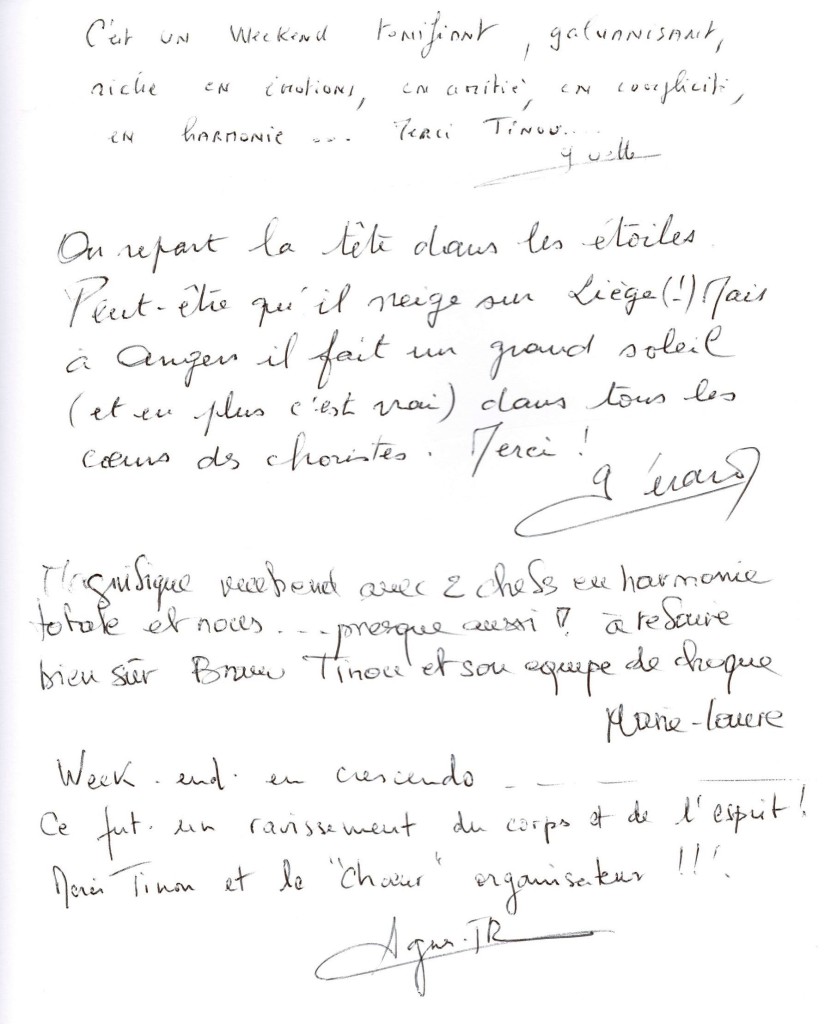 C'est un Weekend tonifiant, galvanisant,
riche en émotions, en amitié, en complicité,
en harmonie ... Merci Tinou....
Yvette
On repart la tête dans les étoiles.
Peut-être qu'il neige sur Liège(!) Mais
à Angers il fait un grand soleil
(et en plus c'est vrai) dans tous les
cœurs des choristes. Merci !
Gérard
Magnifique weekend avec 2 chefs en harmonie
totale et nous ... presque aussi ! à refaire
bien sûr Bravo Tinou et son équipe de choque
Marie-Louise
Week-end en crescendo
Ce fut un ravissement du corps et de l'esprit !
Merci Tinou et le "Chœur" organisateur !!!
Agnès